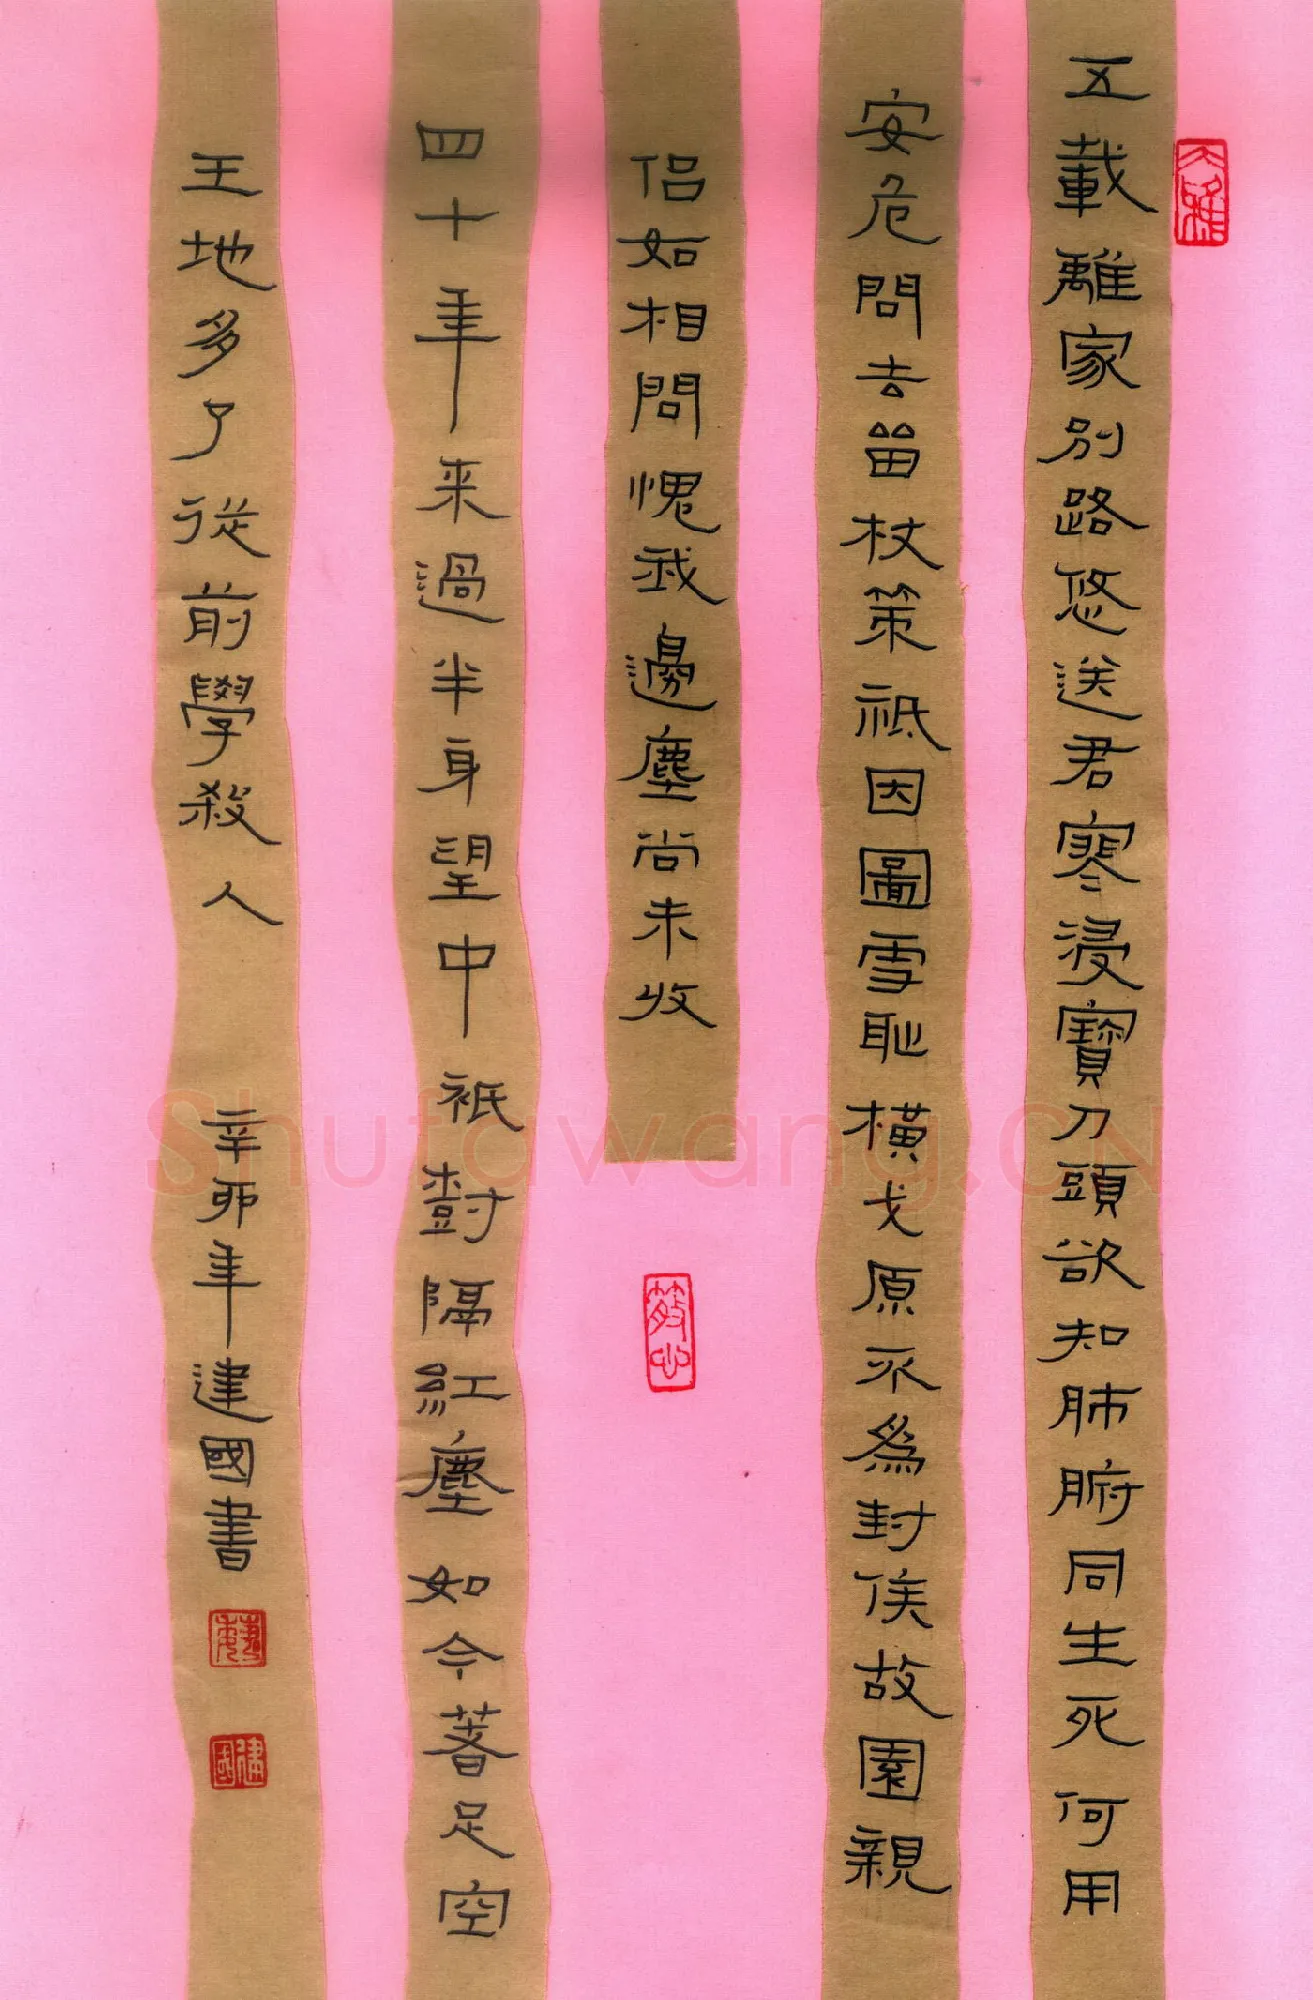 五載離家別路悠送君寒浸寶刀頭欲知肺腑同生死何用
安危問去留杖策祇因圖雪恥橫戈原不為封侯故園親
侶如相問愧我邊塵尚未收
四十年来過半身望中祇樹隔紅塵如今著足空
王地多了從前學殺人 辛卯年建國書
建國
Shufawang.CN